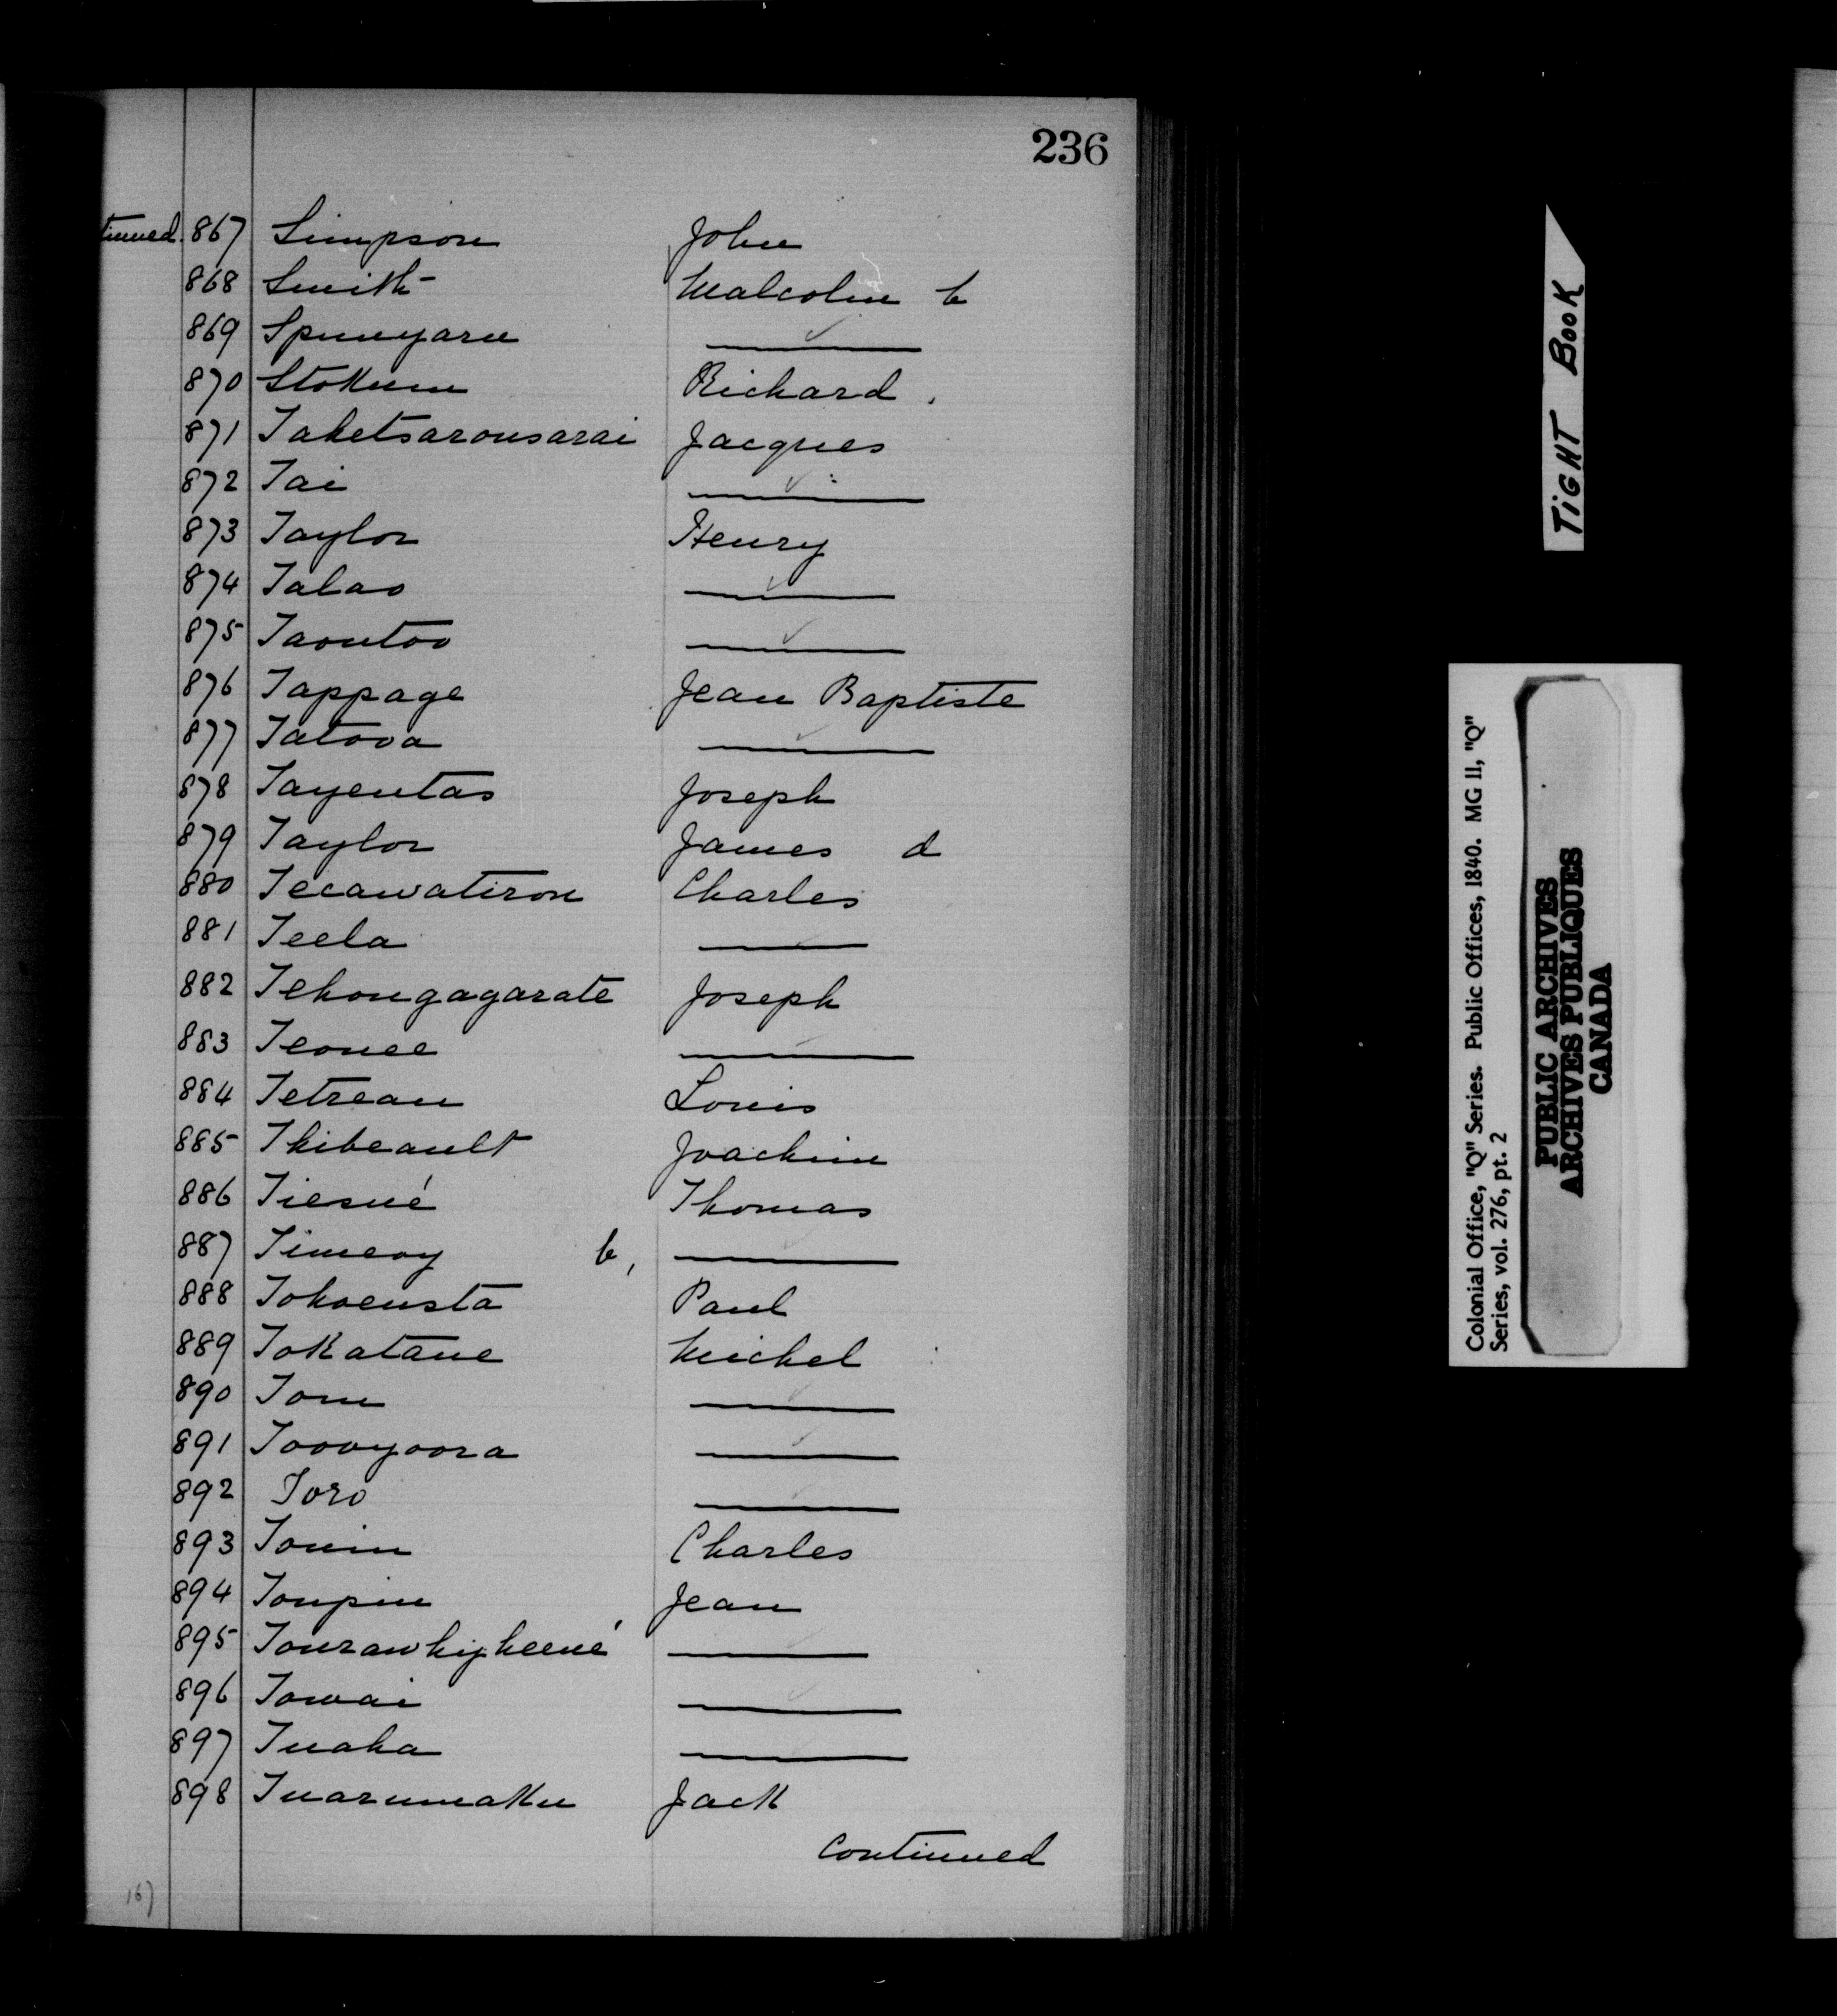 236
tinued. 867 Simpson John
868 Smith Malcolm b
869 Spunyarn ———
870 Stokum Richard.
871 Taketsarousarai Jacques
872 Tai ———
873 Taylor Henry
874 Talao ———
875 Taoutoo ———
876 Tappage Jean Baptiste
877 Tatooa ———
878 Tayentas Joseph
879 Taylor James d
880 Tecawatiron Charles
881 Teela ———
882 Tehongagarate Joseph
883 Teonee ———
884 Tetreau Louis
885 Thibeault Joachim
886 Tiesué Thomas
887 Timeoy b, ———
888 Tohoensta Paul
889 Tokatane Michel
890 Tom ———
891 Toovyoora ———
892 Toro ———
893 Touin Charles
894 Toupin Jean
895 Tourawhyheené ———
896 Towai ———
897 Tuaha ———
898 Tuarumaku Jack
Continued
167
TIGHT BOOK
Colonial Office, "Q" Series. Public Offices, 1840. MG 11, "Q"
Series, vol. 276, pt. 2
PUBLIC ARCHIVES
ARCHIVES PUBLIQUES
CANADA